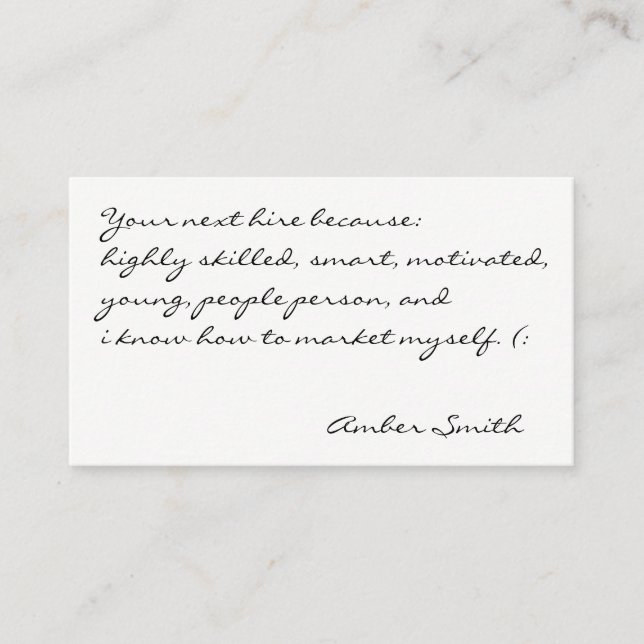 Your next hire because:
highly skilled, smart, motivated,
young, people person, and
i know how to market myself. (:
Amber Smith